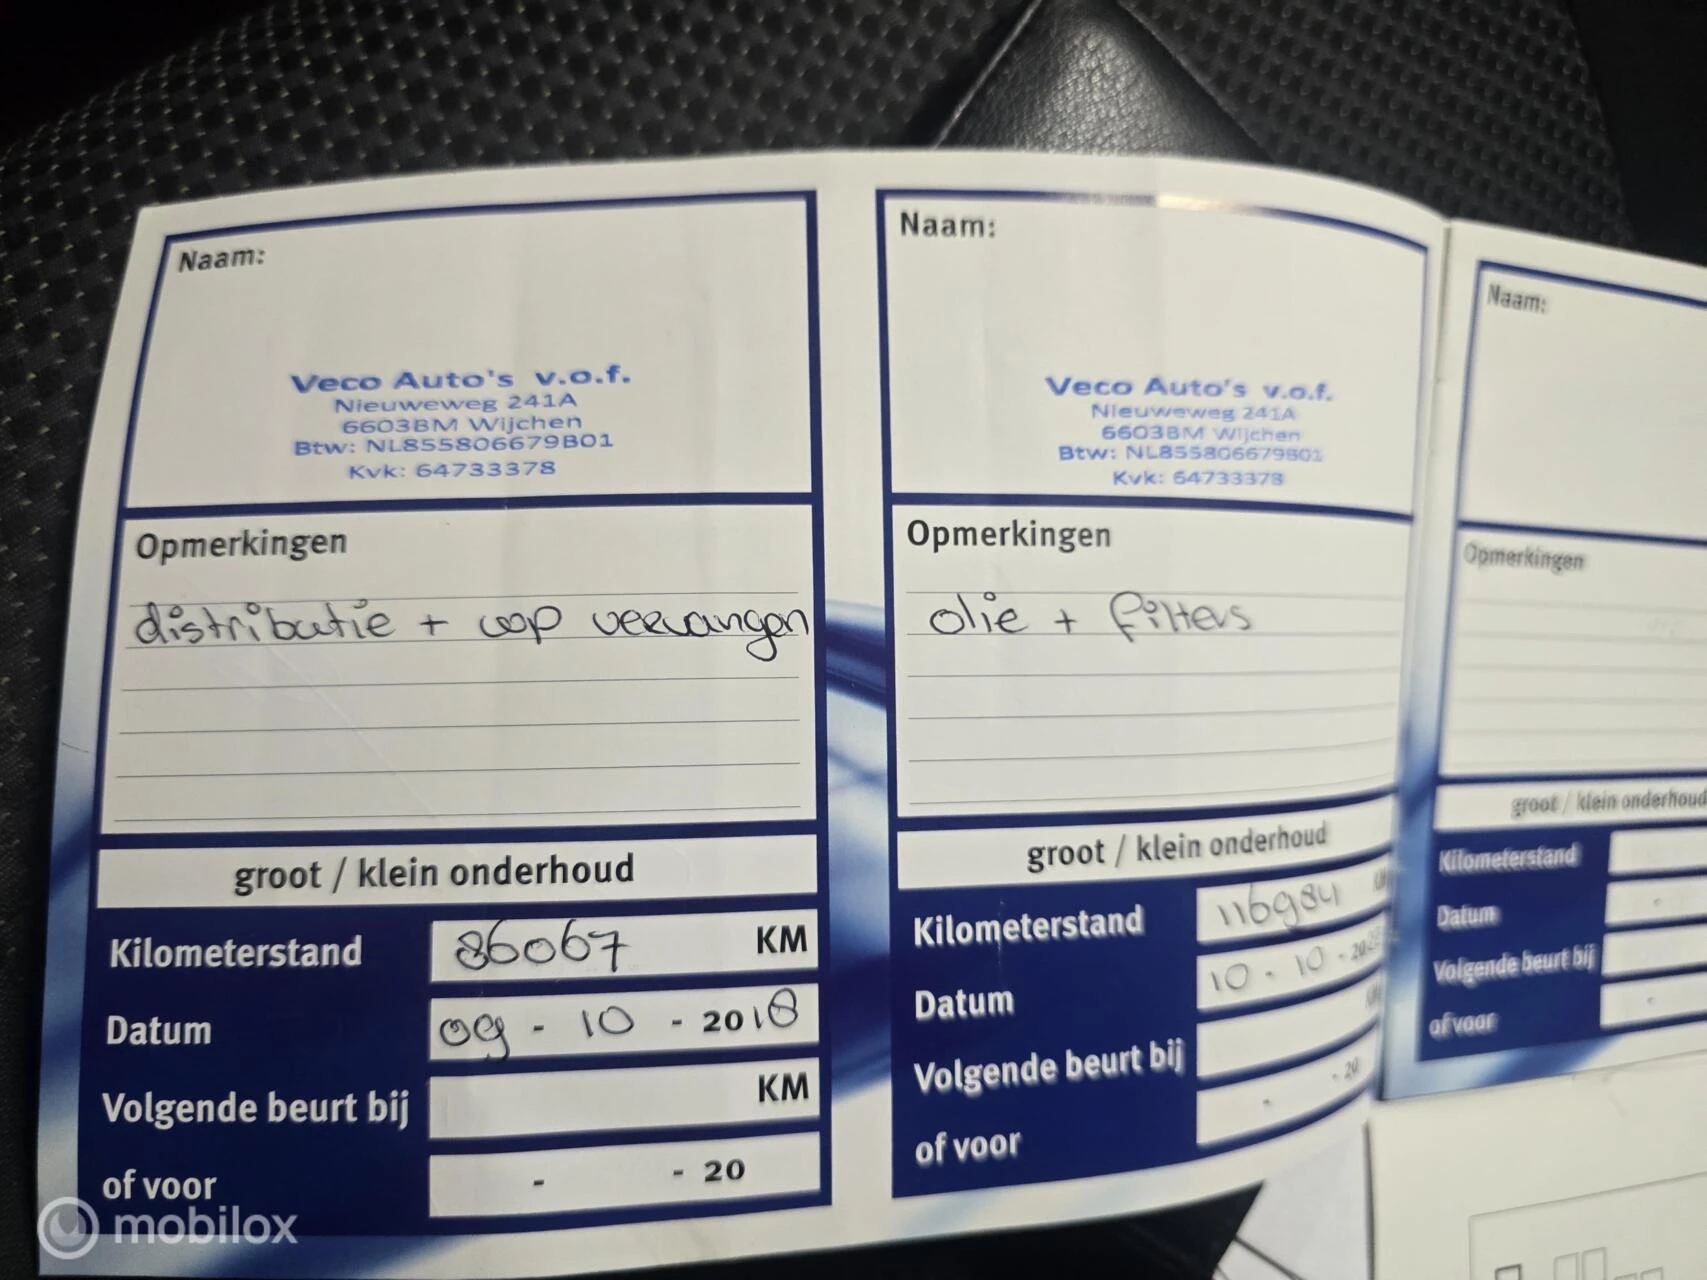 Naam:
Veco Auto's v.o.f.
Nieuweweg 241A
6603BM Wijchen
Btw: NL855806679B01
Kvk: 64733378
Opmerkingen
distributie + wop vervangen
groot / klein onderhoud
Kilometerstand 86067 KM
Datum 09 - 10 - 2018
Volgende beurt bij KM
of voor - - 20
Naam:
Veco Auto's v.o.f.
Nieuweweg 241A
6603BM Wijchen
Btw: NL855806679B01
Kvk: 64733378
Opmerkingen
olie + filters
groot / klein onderhoud
Kilometerstand 116984
Datum 10 - 10 - 20
Volgende beurt bij
of voor - - 20
Naam:
Opmerkingen
groot / klein onderhoud
Kilometerstand
Datum -
Volgende beurt bij
of voor -
mobilox